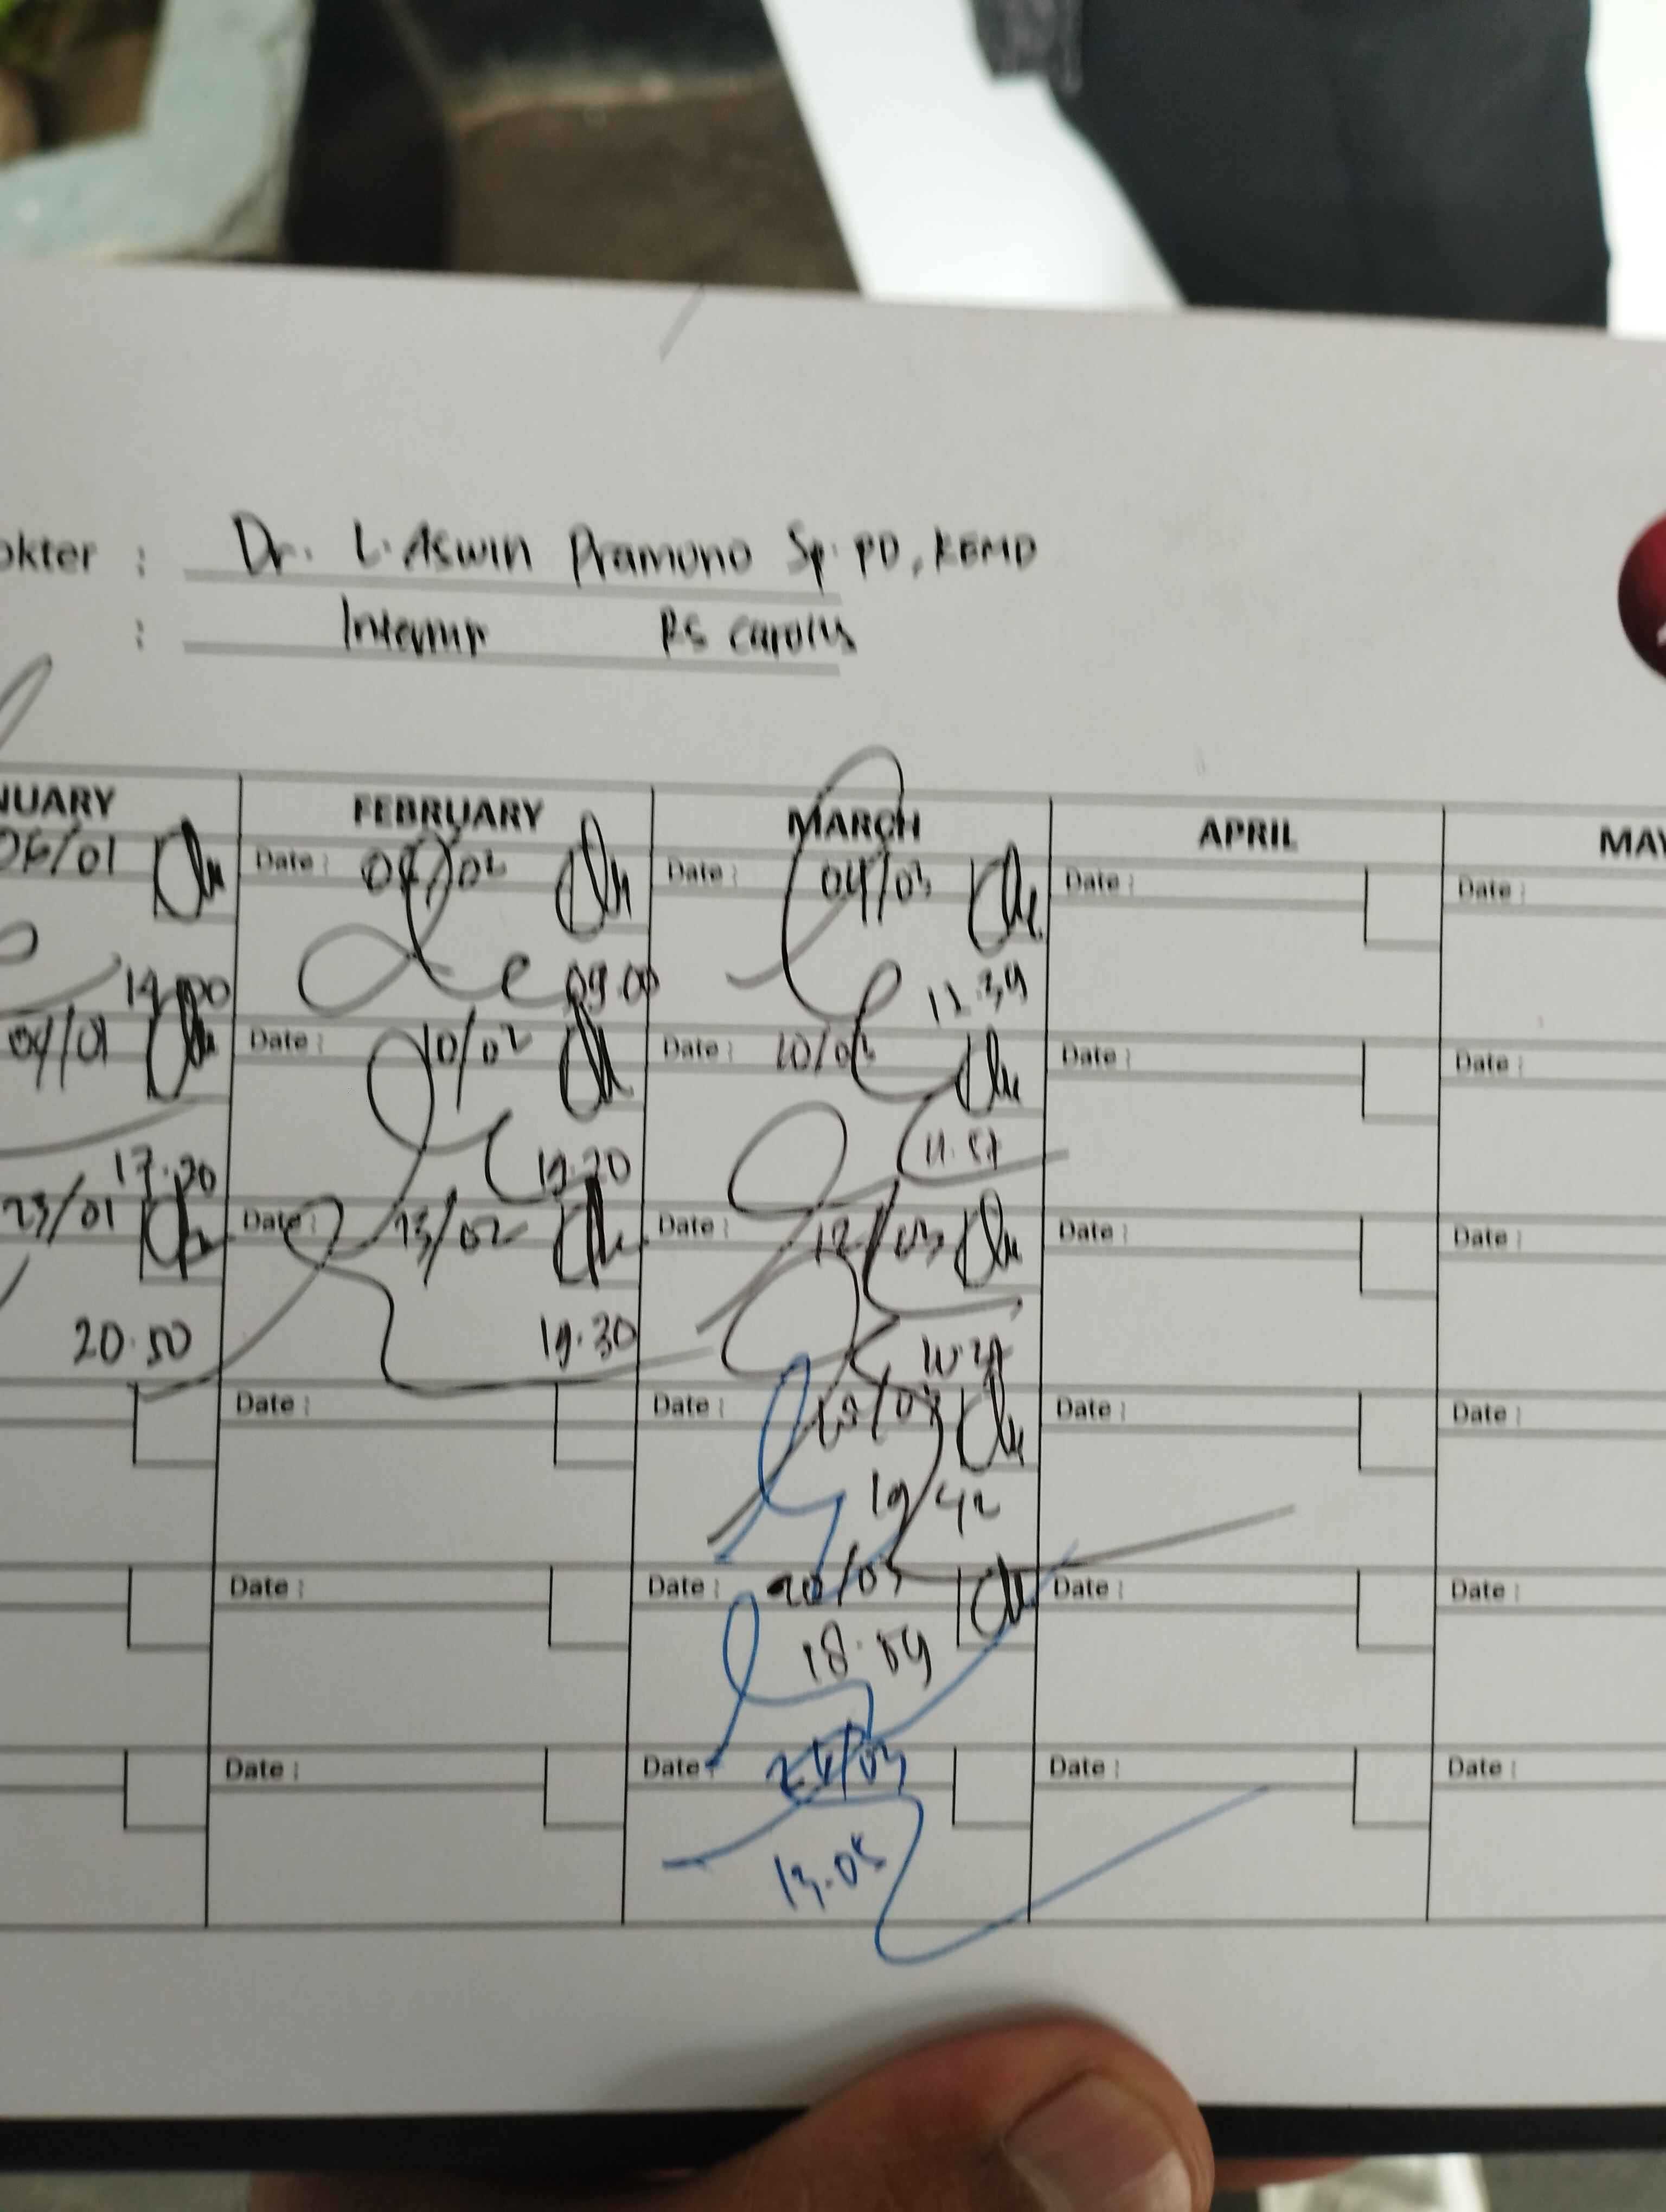 okter : Dr. L. Aswin Pramono Sp. PD, KEMD
: RS Carolus
NUARY FEBRUARY MARCH APRIL MAY
06/01 Date : /02 Date : 04/03 Date : Date :
14.00 09.00 11.39
09/01 Date : 10/02 Date : 10/03 Date : Date :
17.20 19.20 11.57
23/01 Date : 13/02 Date : 12/03 Date : Date :
20.50 19.30
Date : Date : Date : Date :
19/42
Date : Date : 20/03 Date : Date :
18.09
Date : Date : Date : Date :
13.05